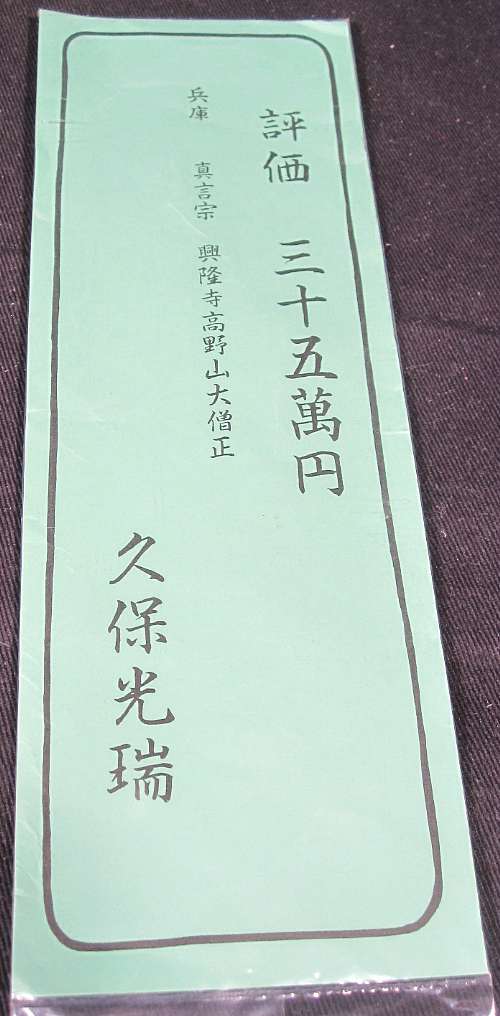 評価 三十五萬円
兵庫 真言宗 興隆寺高野山大僧正
久保光瑞